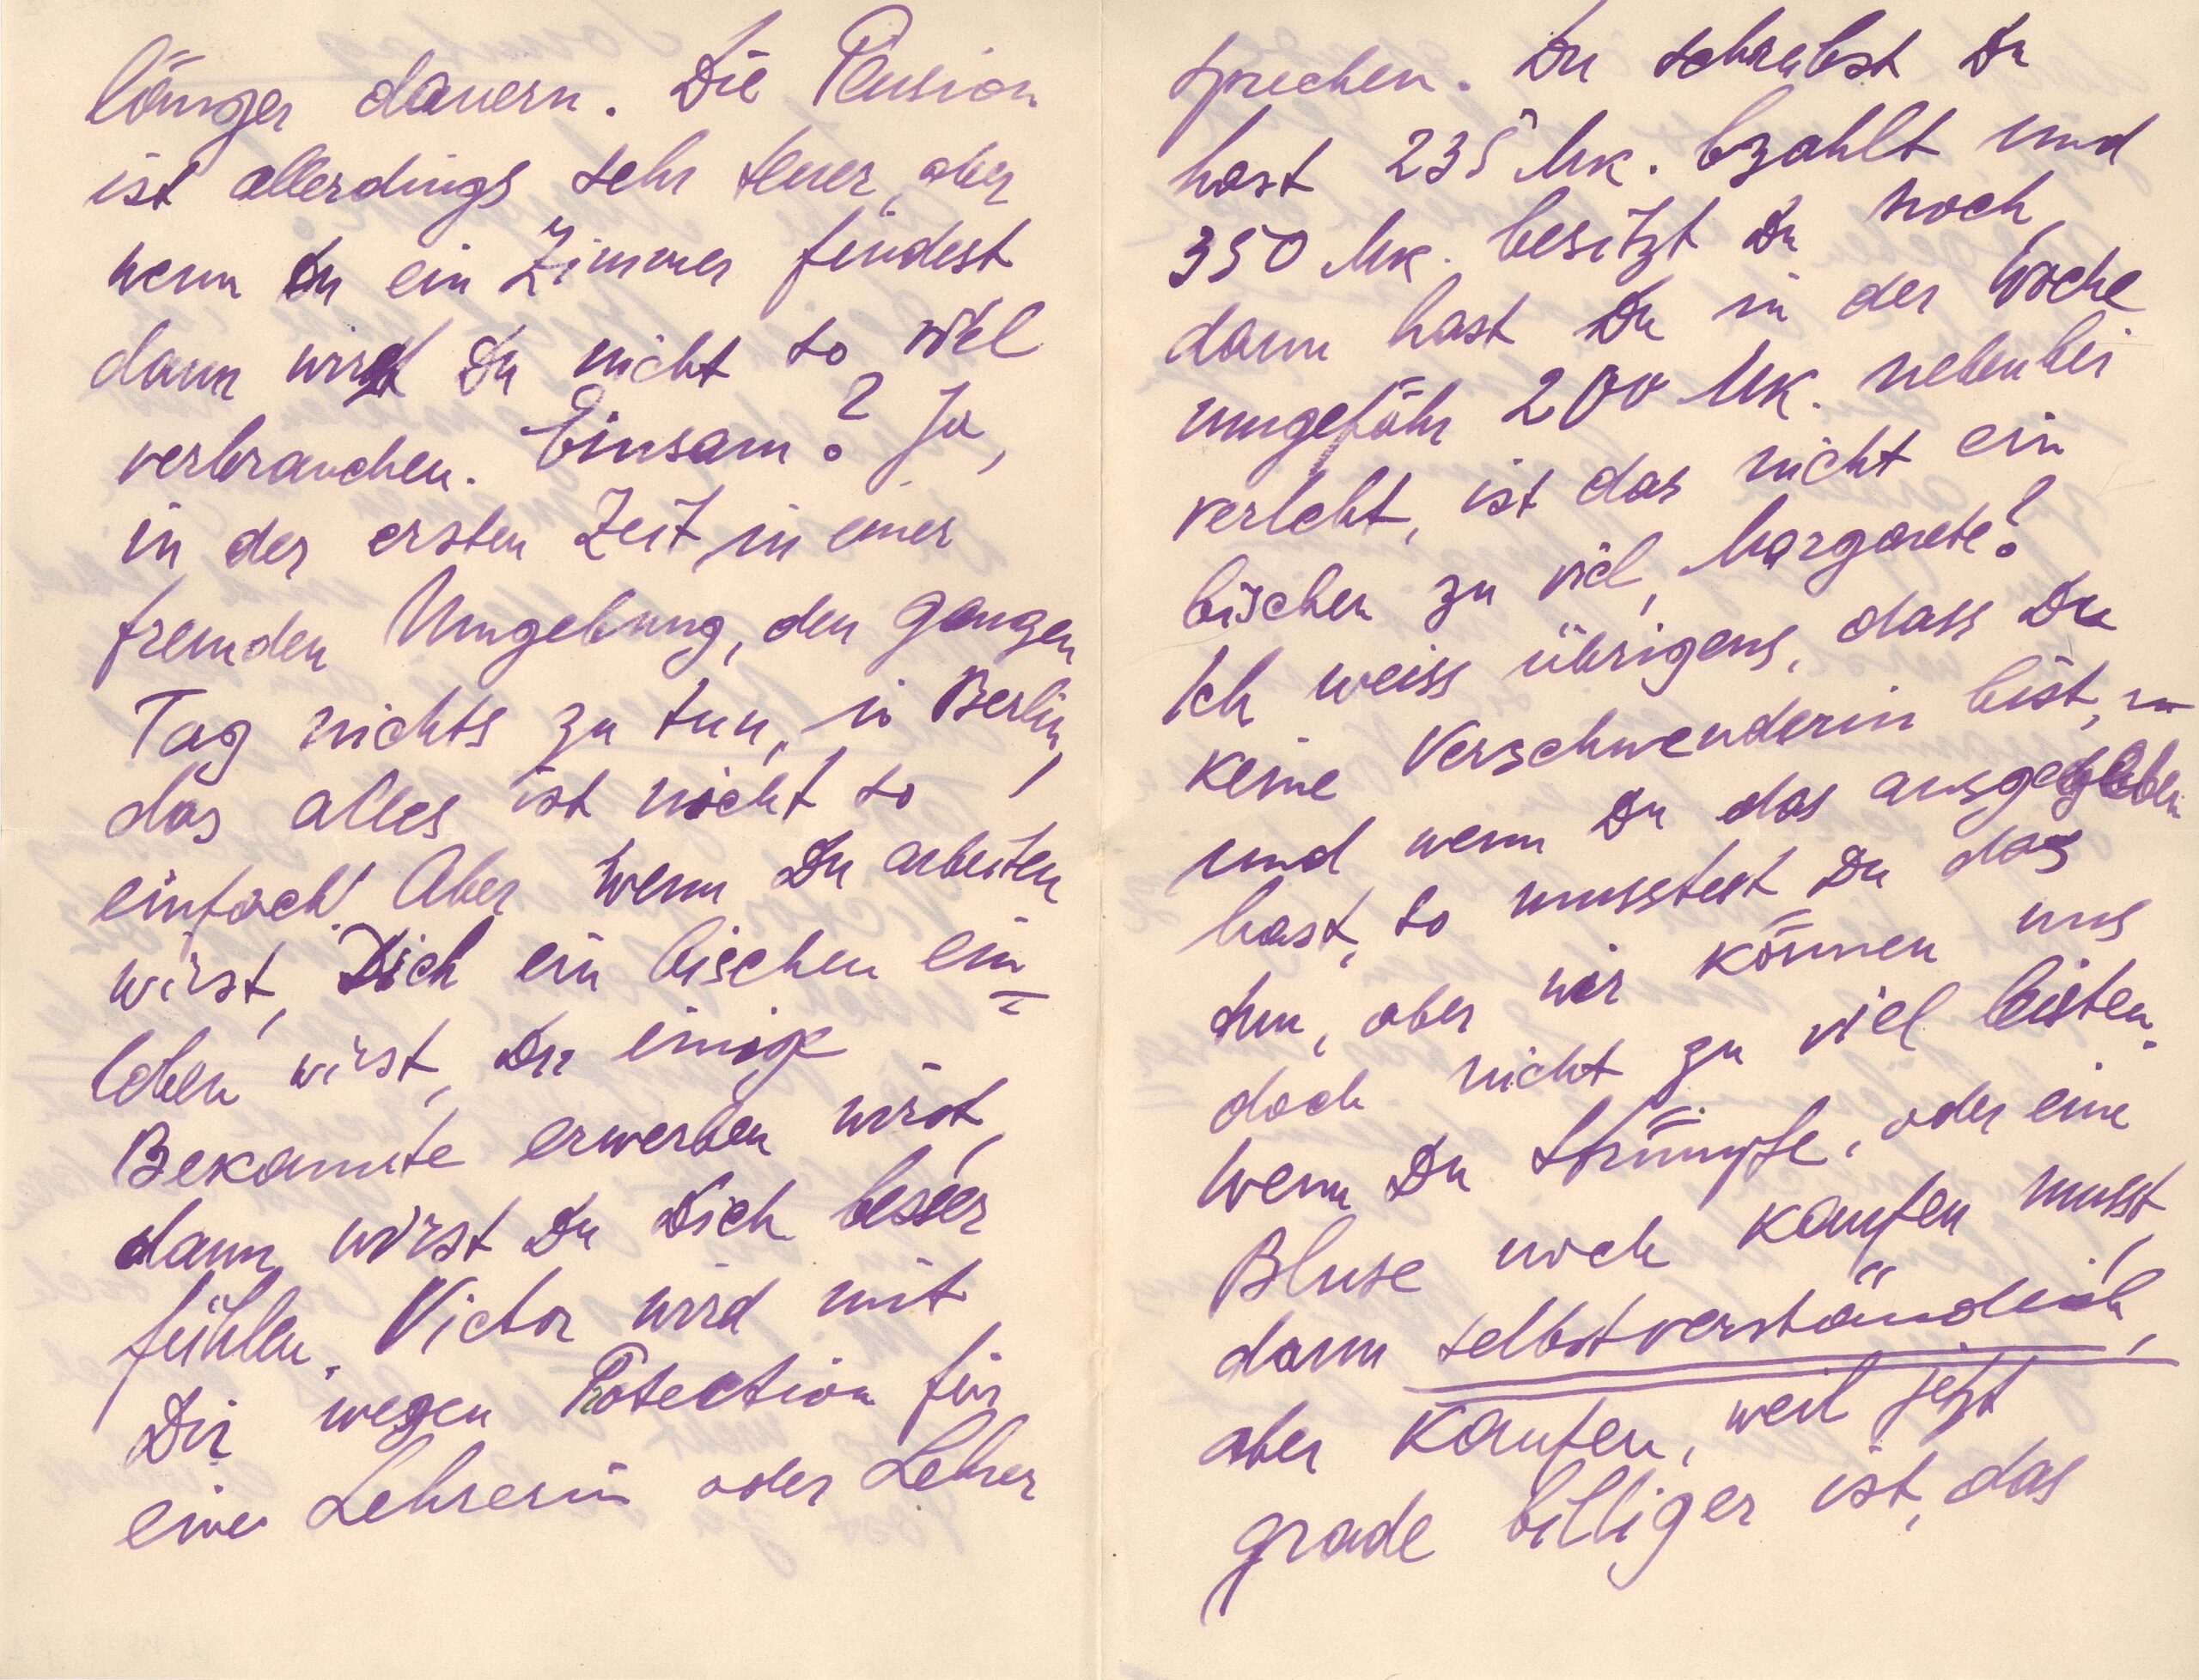 länger dauern. Die Pension
ist allerdings sehr teuer, aber
wenn Du ein Zimmer findest
dann wirst Du nicht so viel
verbrauchen. Einsam? Ja,
in der ersten Zeit in einer
fremden Umgebung, den ganzen
Tag nichts zu tun, in Berlin,
das alles ist nicht so
einfach! Aber wenn Du arbeiten
wirst, Dich ein bischen ein=
leben wirst, Du einige
Bekannte erwerben wirst,
dann wirst Du Dich besser
fühlen. Victor wird mit
Dir wegen Protection für
eine Lehrerin oder Lehrer
sprechen. Du schreibst Du
hast 235 Mk. bzahlt und
350 Mk. besitzt Du noch,
dann hast Du in der Woche
ungefähr 200 Mk. nebenbei
verlebt, ist das nicht ein
bischen zu viel, Margarete?
Ich weiss übrigens, dass Du
keine Verschwenderin bist,
und wenn Du das ausgegeben
hast, so musstest Du das
tun, aber wir können uns
doch nicht zu viel leisten.
Wenn Du Strümpfe, oder eine
Bluse noch kaufen musst,
dann selbstverständlich,
aber kaufen, weil jetzt
grade billiger ist, das